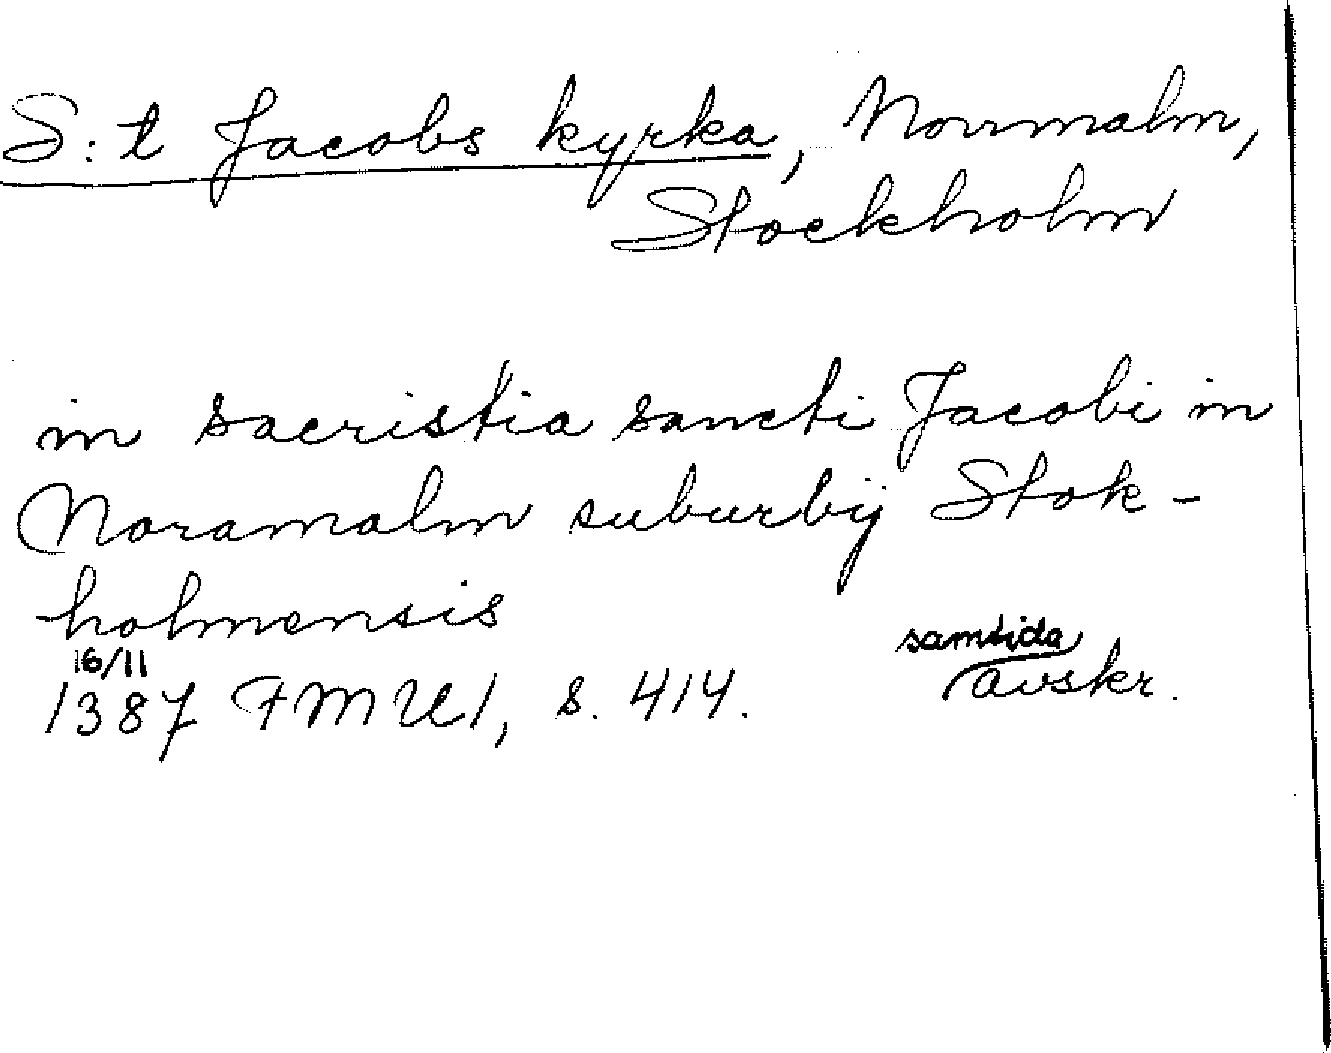 S:t Jacobs kyrka, Norrmalm,
Stockholm
in sacristia sancti Jacobi in
Noramalm suburbij Stok-
holmensis
16/11 samtida
1387 FMU 1, s. 414. avskr.